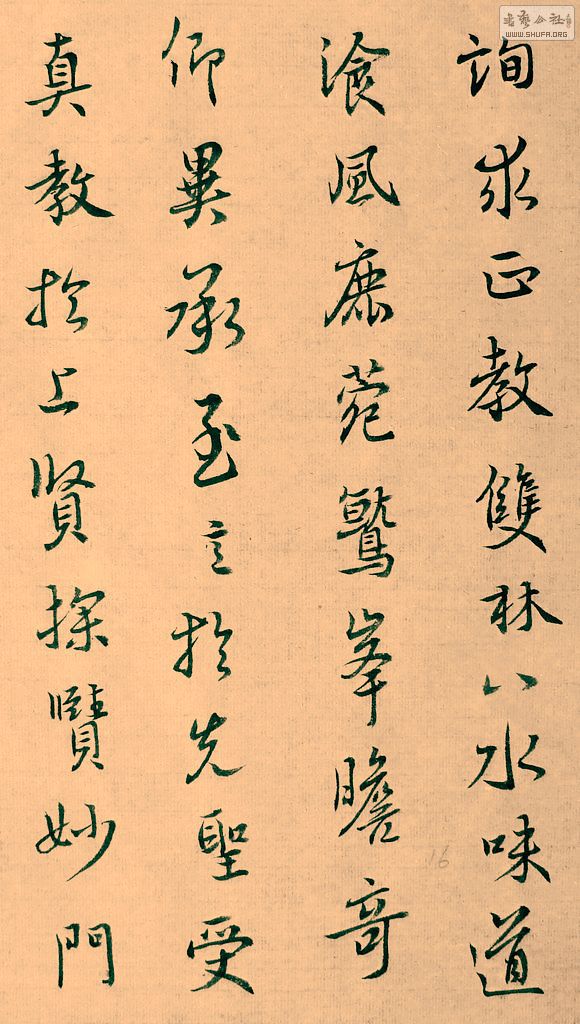 詢求正教雙林八水味道
飡風鹿菀鷲峯瞻奇
仰異承至言於先聖受
真教於上賢探賾妙門
書藝公社
WWW.SHUFA.ORG
16